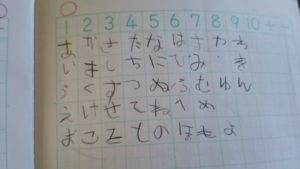 1 2 3 4 5 6 7 8 9 10 + −
あ か さ た な は
い き し ち に ひ み
う く す つ ぬ ふ む ゆ ん
え け せ て ね へ め
お こ そ と の ほ も よ